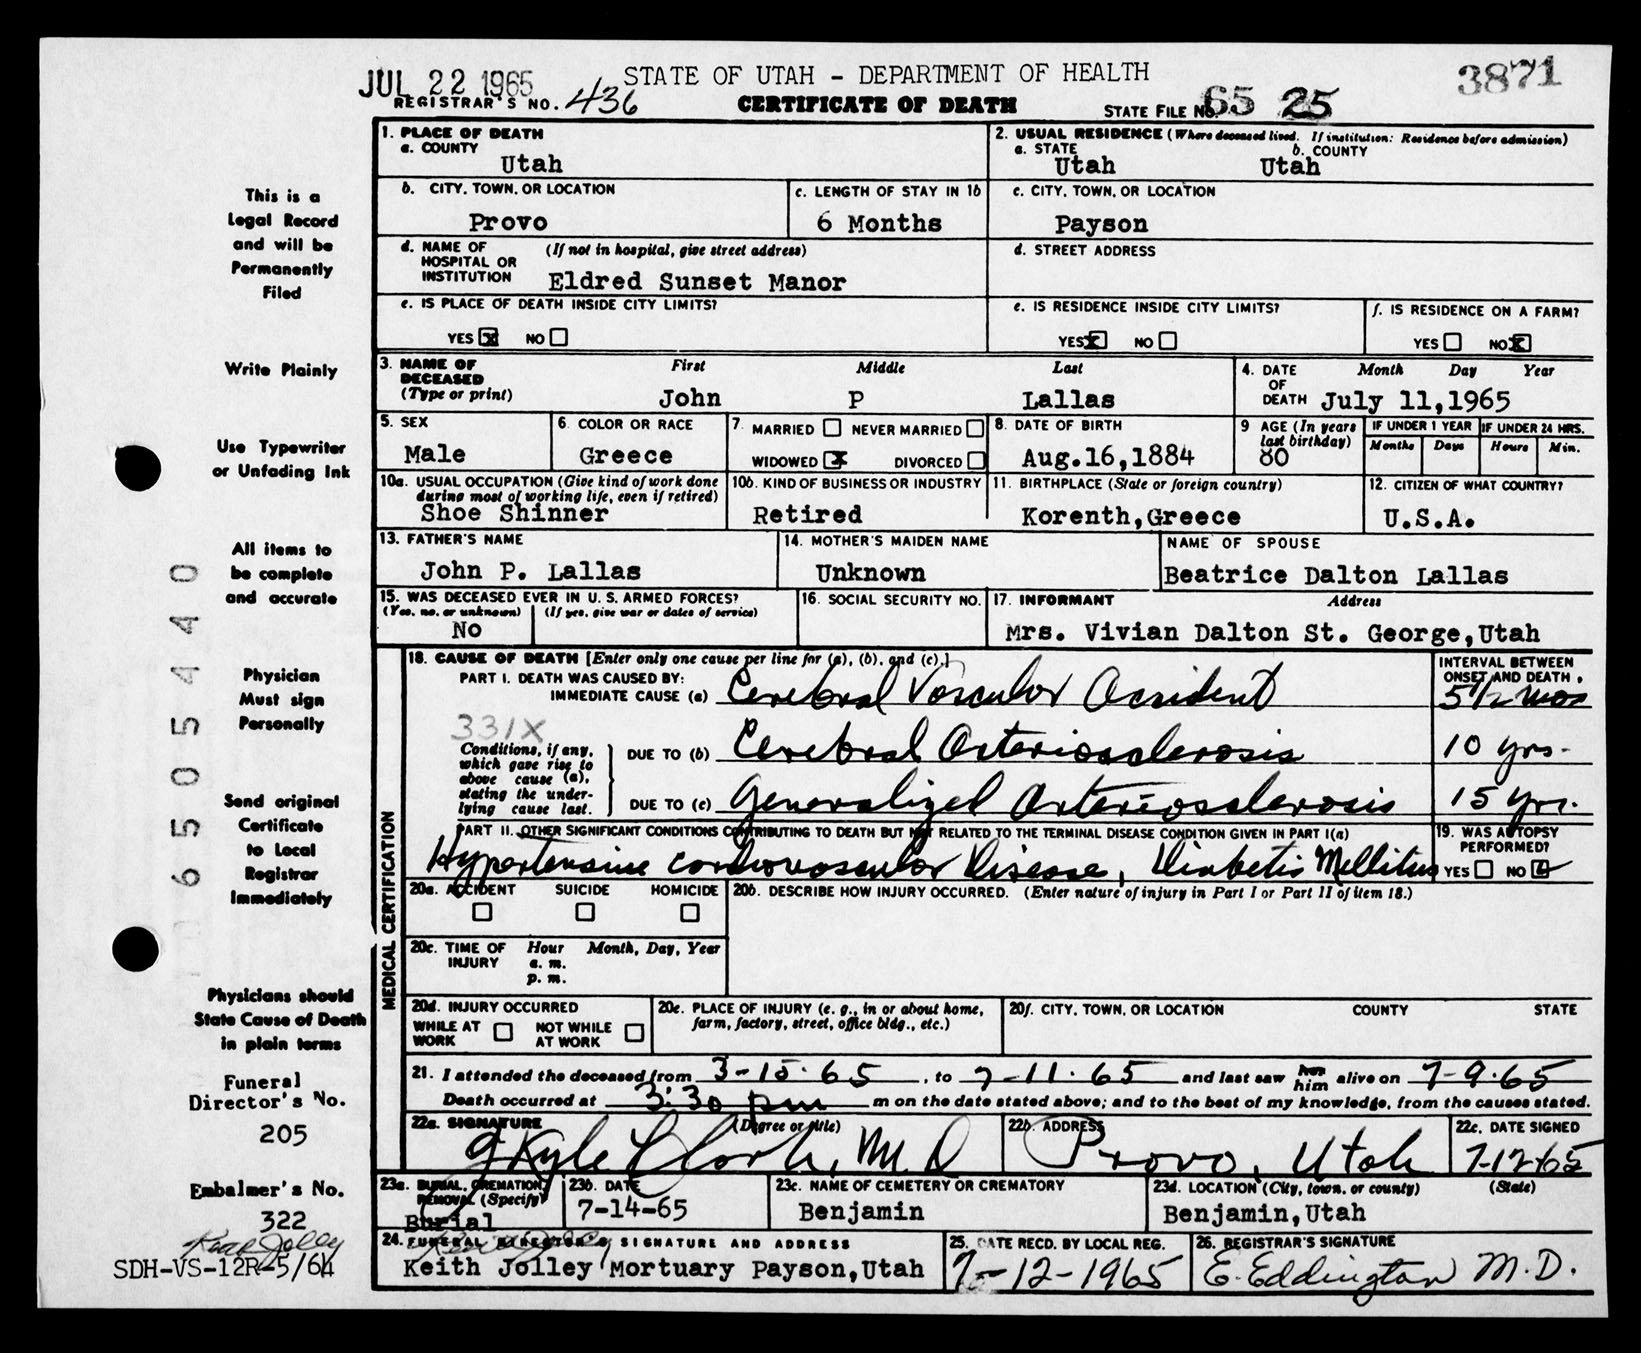 JUL 22 1965
STATE OF UTAH - DEPARTMENT OF HEALTH
3871
REGISTRAR'S NO. 436
CERTIFICATE OF DEATH
STATE FILE NO. 65 25
This is a
Legal Record
and will be
Permanently
Filed
Write Plainly
Use Typewriter
or Unfading Ink
All items to
be complete
and accurate
Physician
Must sign
Personally
Send original
Certificate
to Local
Registrar
Immediately
Physicians should
State Cause of Death
in plain terms
Funeral
Director's No.
205
Embalmer's No.
322
Keith Jolley
SDH-VS-12R-5/64
6505440
1. PLACE OF DEATH
a. COUNTY
Utah
2. USUAL RESIDENCE (Where deceased lived. If institution: Residence before admission)
a. STATE b. COUNTY
Utah Utah
b. CITY, TOWN, OR LOCATION
Provo
c. LENGTH OF STAY IN 1b
6 Months
c. CITY, TOWN, OR LOCATION
Payson
d. NAME OF (If not in hospital, give street address)
HOSPITAL OR
INSTITUTION Eldred Sunset Manor
d. STREET ADDRESS
e. IS PLACE OF DEATH INSIDE CITY LIMITS?
YES X NO
e. IS RESIDENCE INSIDE CITY LIMITS?
YES X NO
f. IS RESIDENCE ON A FARM?
YES NO X
3. NAME OF First Middle Last
DECEASED
(Type or print) John P Lallas
4. DATE Month Day Year
OF
DEATH July 11,1965
5. SEX
Male
6. COLOR OR RACE
Greece
7. MARRIED NEVER MARRIED
WIDOWED X DIVORCED
8. DATE OF BIRTH
Aug.16,1884
9 AGE (In years
last birthday)
80
IF UNDER 1 YEAR IF UNDER 24 HRS.
Months Days Hours Min.
10a. USUAL OCCUPATION (Give kind of work done
during most of working life, even if retired)
Shoe Shinner
10b. KIND OF BUSINESS OR INDUSTRY
Retired
11. BIRTHPLACE (State or foreign country)
Korenth,Greece
12. CITIZEN OF WHAT COUNTRY?
U.S.A.
13. FATHER'S NAME
John P. Lallas
14. MOTHER'S MAIDEN NAME
Unknown
NAME OF SPOUSE
Beatrice Dalton Lallas
15. WAS DECEASED EVER IN U. S. ARMED FORCES?
(Yes, no, or unknown) (If yes, give war or dates of service)
No
16. SOCIAL SECURITY NO.
17. INFORMANT Address
Mrs. Vivian Dalton St. George,Utah
MEDICAL CERTIFICATION
18. CAUSE OF DEATH [Enter only one cause per line for (a), (b), and (c).]
INTERVAL BETWEEN
ONSET AND DEATH
PART I. DEATH WAS CAUSED BY:
IMMEDIATE CAUSE (a) Cerebral Vascular Accident 5 1/2 mos
331X
Conditions, if any,
which gave rise to
above cause (a),
stating the under-
lying cause last.
DUE TO (b) Cerebral Arteriosclerosis 10 yrs.
DUE TO (c) Generalized Arteriosclerosis 15 yrs.
PART II. OTHER SIGNIFICANT CONDITIONS CONTRIBUTING TO DEATH BUT NOT RELATED TO THE TERMINAL DISEASE CONDITION GIVEN IN PART I(a)
Hypertensive cardiovascular Disease, Diabetis Mellitus
19. WAS AUTOPSY
PERFORMED?
YES NO
20a. ACCIDENT SUICIDE HOMICIDE
20b. DESCRIBE HOW INJURY OCCURRED. (Enter nature of injury in Part I or Part II of item 18.)
20c. TIME OF Hour Month, Day, Year
INJURY a. m.
p. m.
20d. INJURY OCCURRED
WHILE AT WORK NOT WHILE AT WORK
20e. PLACE OF INJURY (e. g., in or about home,
farm, factory, street, office bldg., etc.)
20f. CITY, TOWN, OR LOCATION COUNTY STATE
21. I attended the deceased from 3-15-65, to 7-11-65 and last saw her him alive on 7-9-65
Death occurred at 3:30 pm m on the date stated above; and to the best of my knowledge, from the causes stated.
22a. SIGNATURE (Degree or title)
J Kyle Clark, M.D
22b. ADDRESS
Provo, Utah
22c. DATE SIGNED
7-12-65
23a. BURIAL, CREMATION,
REMOVAL (Specify)
Burial
23b. DATE
7-14-65
23c. NAME OF CEMETERY OR CREMATORY
Benjamin
23d. LOCATION (City, town, or county) (State)
Benjamin,Utah
24. FUNERAL DIRECTOR'S SIGNATURE AND ADDRESS
Keith Jolley Mortuary Payson,Utah
25. DATE RECD. BY LOCAL REG.
7-12-1965
26. REGISTRAR'S SIGNATURE
E. Eddington M.D.